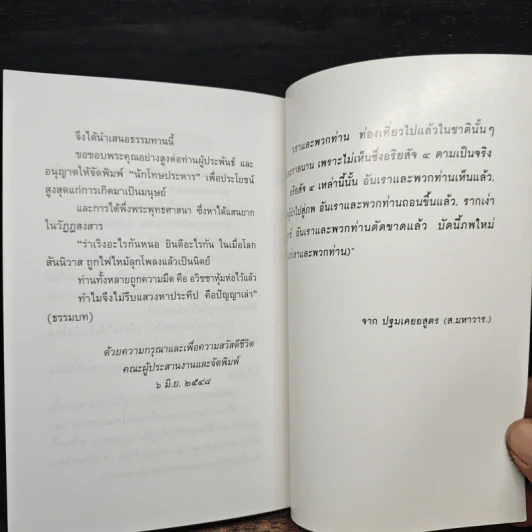 จึงได้นำเสนอธรรมทานนี้
ขอขอบพระคุณอย่างสูงต่อท่านผู้ประพันธ์ และ
อนุญาตให้จัดพิมพ์ “นักโทษประหาร” เพื่อประโยชน์
สูงสุดแก่การเกิดมาเป็นมนุษย์
และการได้พึ่งพระพุทธศาสนา ซึ่งหาได้แสนยาก
ในวัฏฏสงสาร
“ร่าเริงอะไรกันหนอ ยินดีอะไรกัน ในเมื่อโลก
สันนิวาส ถูกไฟไหม้ลุกโพลงแล้วเป็นนิตย์
ท่านทั้งหลายถูกความมืด คือ อวิชชาหุ้มห่อไว้แล้ว
ทำไมจึงไม่รีบแสวงหาประทีป คือปัญญาเล่า”
(ธรรมบท)
ด้วยความกรุณาและเพื่อความสวัสดีชีวิต
คณะผู้ประสานงานและจัดพิมพ์
๖ มิ.ย. ๒๕๔๘
เราและพวกท่าน ท่องเที่ยวไปแล้วในชาตินั้นๆ
เพราะไม่เห็นซึ่งอริยสัจ ๔ ตามเป็นจริง
อริยสัจ ๔ เหล่านี้นั้น อันเราและพวกท่านเห็นแล้ว,
อันเราและพวกท่านถอนขึ้นแล้ว, รากเง่า
อันเราและพวกท่านตัดขาดแล้ว บัดนี้ภพใหม่
เราและพวกท่าน)”
จาก ปฐมเคยยสูตร (ส.มหาวาร.)